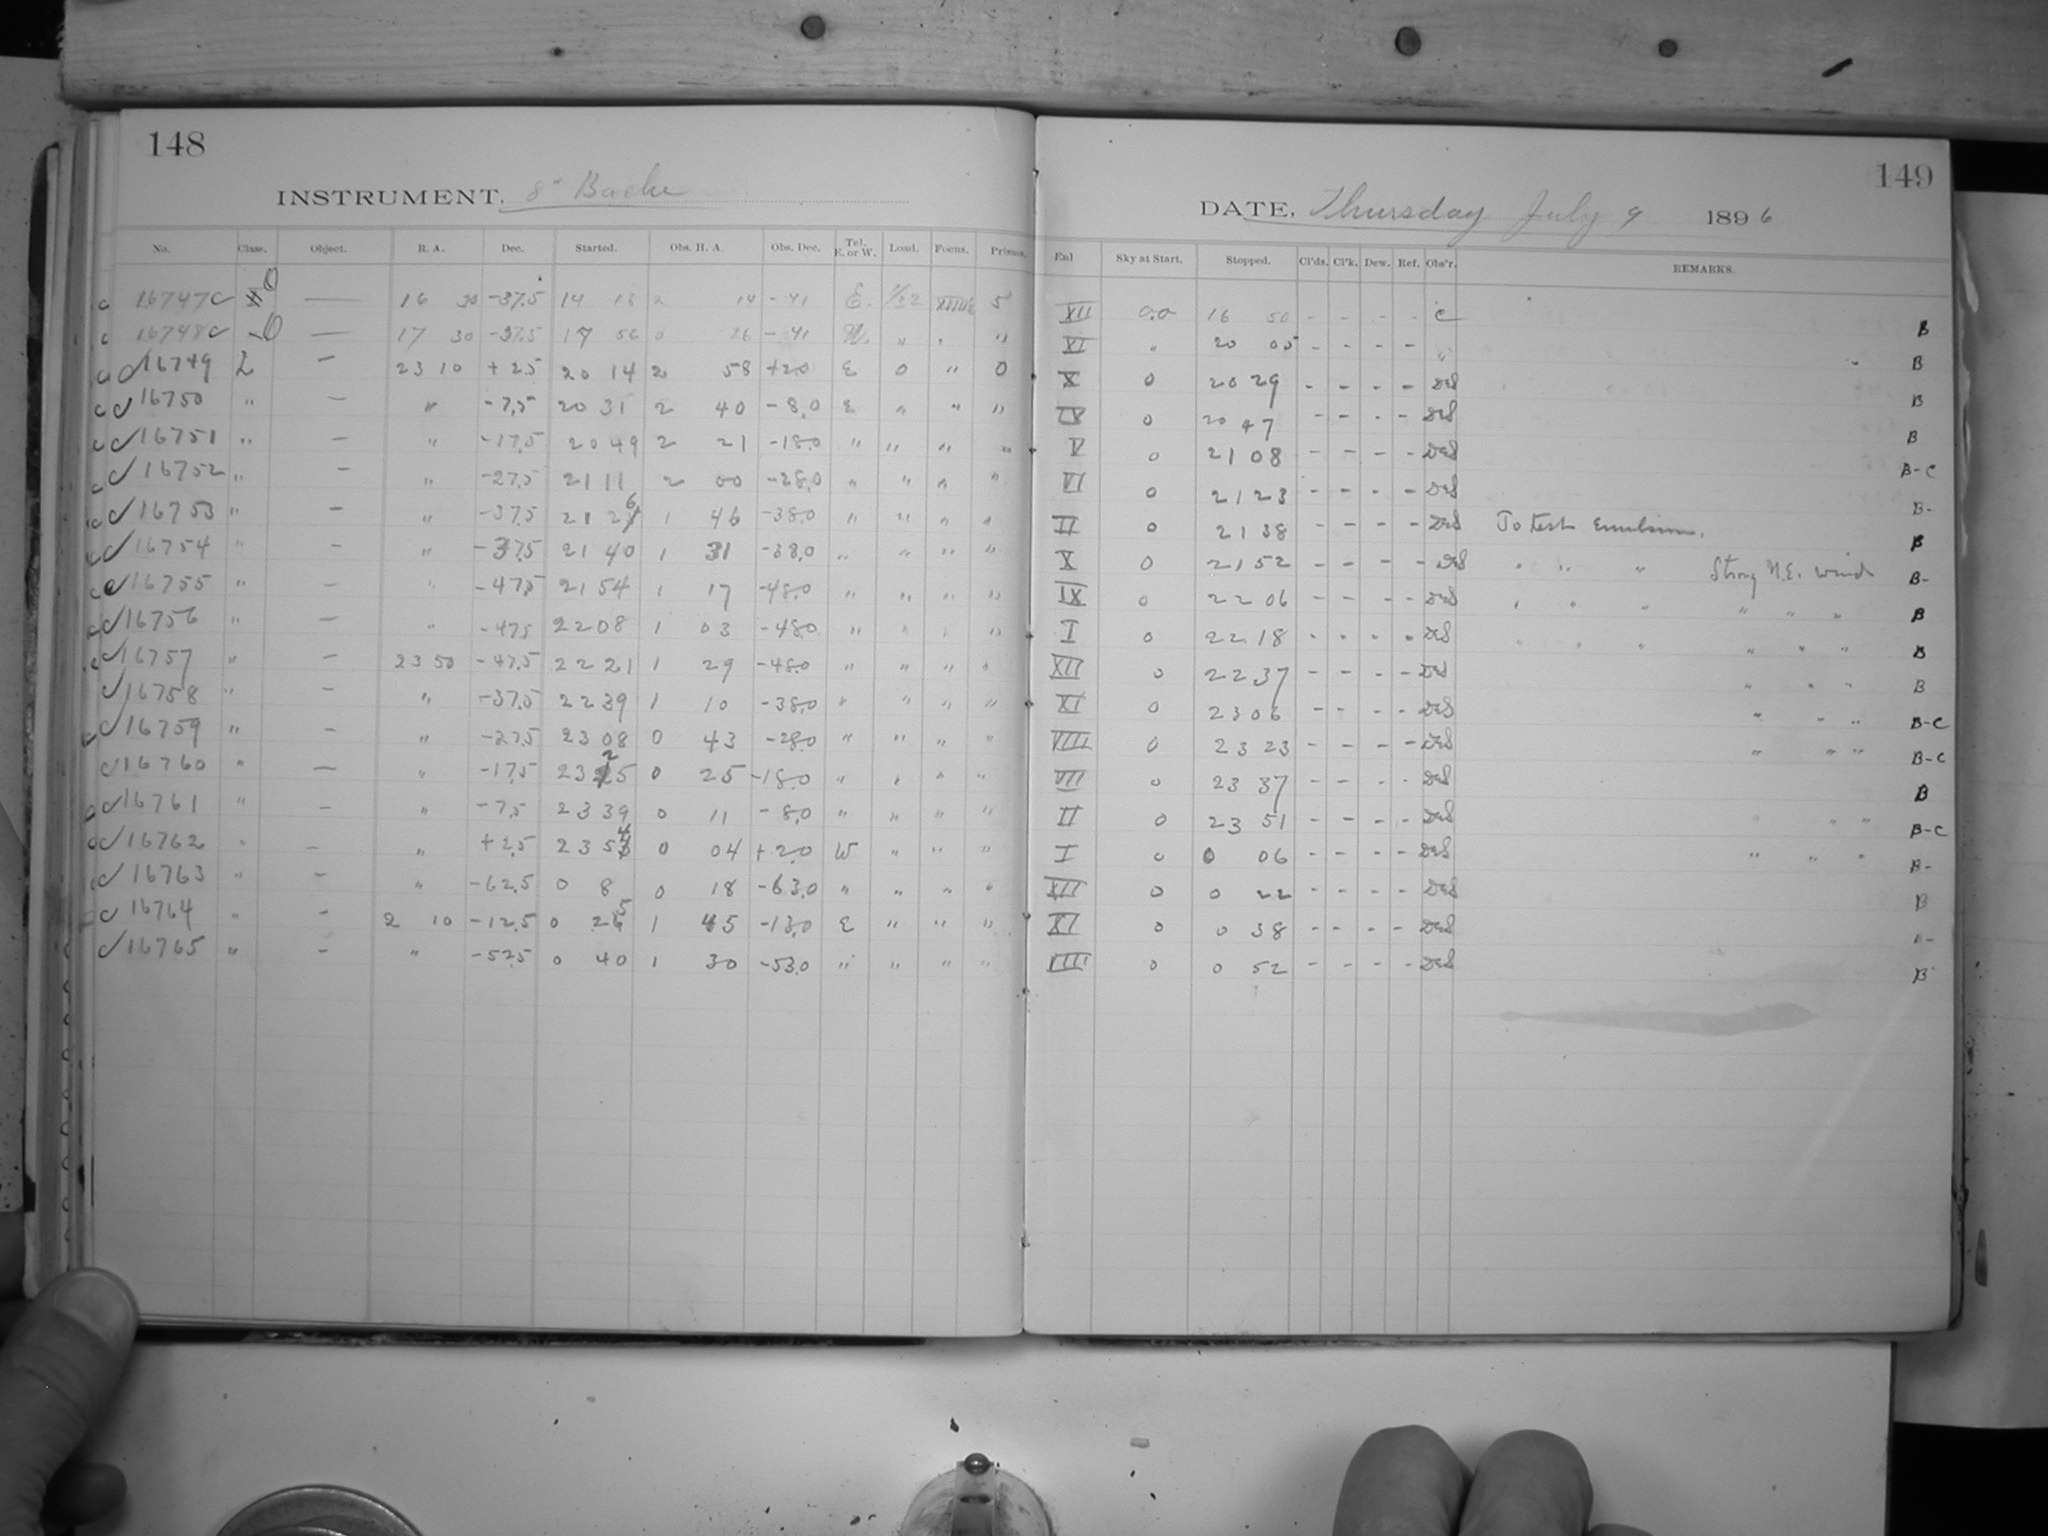 148
INSTRUMENT, 8" Bache
No. Class. Object. R. A. Dec. Started. Obs. H. A. Obs. Dec. Tel. E. or W. Load. Focus. Prisms.
16747 C — 16 30 -37.5 14 13 2 14 -41 E. 5
16748 C — 17 30 -37.5 17 56 0 26 -41 W. " " "
16749 L — 23 10 +2.5 20 14 2 58 +2.0 E 0 " 0
16750 " — " -7.5 20 31 2 40 -8.0 E " " "
16751 " — " -17.5 20 49 2 21 -18.0 " " " "
16752 " — " -27.5 21 11 2 00 -28.0 " " " "
16753 " — " -37.5 21 26 1 46 -38.0 " " " "
16754 " — " -37.5 21 40 1 31 -38.0 " " " "
16755 " — " -47.5 21 54 1 17 -48.0 " " " "
16756 " — " -47.5 22 08 1 03 -48.0 " " " "
16757 " — 23 50 -47.5 22 21 1 29 -48.0 " " " "
16758 " — " -37.5 22 39 1 10 -38.0 " " " "
16759 " — " -27.5 23 08 0 43 -28.0 " " " "
16760 " — " -17.5 23 25 0 25 -18.0 " " " "
16761 " — " -7.5 23 39 0 11 -8.0 " " " "
16762 " — " +2.5 23 54 0 04 +2.0 W " " "
16763 " — " -62.5 0 8 0 18 -63.0 " " " "
16764 " — 2 10 -12.5 0 25 1 45 -13.0 E " " "
16765 " — " -52.5 0 40 1 30 -53.0 " " " "
149
DATE, Thursday July 9 1896
Enl Sky at Start. Stopped. Cl'ds. Cl'k. Dew. Ref. Obs'r. REMARKS.
XII 0.0 16 50 - - - - C B
XI " 20 05 - - - - " B
X 0 20 29 - - - - DeS B
IX 0 20 47 - - - - DeS B
V 0 21 08 - - - - DeS B-C
VI 0 21 23 - - - - DeS B-
II 0 21 38 - - - - DeS To test Emulsion. B
X 0 21 52 - - - - DeS " " " Strong N.E. wind B-
IX 0 22 06 - - - - DeS " " " " " " B
I 0 22 18 - - - - DeS " " " " " " B
XII 0 22 37 - - - - DeS " " " B
XI 0 23 06 - - - - DeS " " " B-C
VIII 0 23 23 - - - - DeS " " " B-C
VII 0 23 37 - - - - DeS B
II 0 23 51 - - - - DeS " " " B-C
I 0 0 06 - - - - DeS " " " B-
XII 0 0 22 - - - - DeS B
XI 0 0 38 - - - - DeS B-
VIII 0 0 52 - - - - DeS B